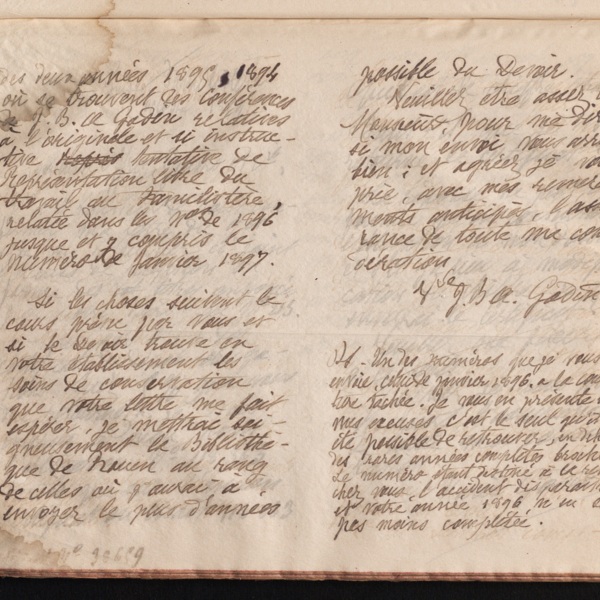 des deux années 1895, 1894
où se trouvent des Conférences
de J. B. A. Godin relatives
à l'originale et si instruc-
tive tentative de
Représentation libre du
travail au Familistère,
relatée dans les Nos de 1896
jusque et y compris le
numéro de Janvier 1897.
Si les choses suivent le
cours prévu par vous et
si le Devoir trouve en
votre établissement les
soins de conservation
que votre lettre me fait
espérer, je mettrai soi-
gneusement la Bibliothè-
que de Rouen au rang
de celles où j'aurai à
envoyer le plus d'années
No 90659
possible du Devoir.
Veuillez être assez
Monsieur, pour me dir
si mon envoi vous arr
bien; et agréez je vo
prie, avec mes remer
ments anticipés, l'ass
rance de toute ma con
sidération
Vve J. B. A. Godin
Un des numéros que je vous
envoie, celui de janvier 1896, a la cou
ture tachée. Je vous en présente
mes excuses. C'est le seul qu'il
été possible de retrouver, en de
des rares années complètes broch
Le numéro étant destiné à la re
chez vous, l'accident disparaîtr
et votre année 1896 n'en
pas moins complétée.